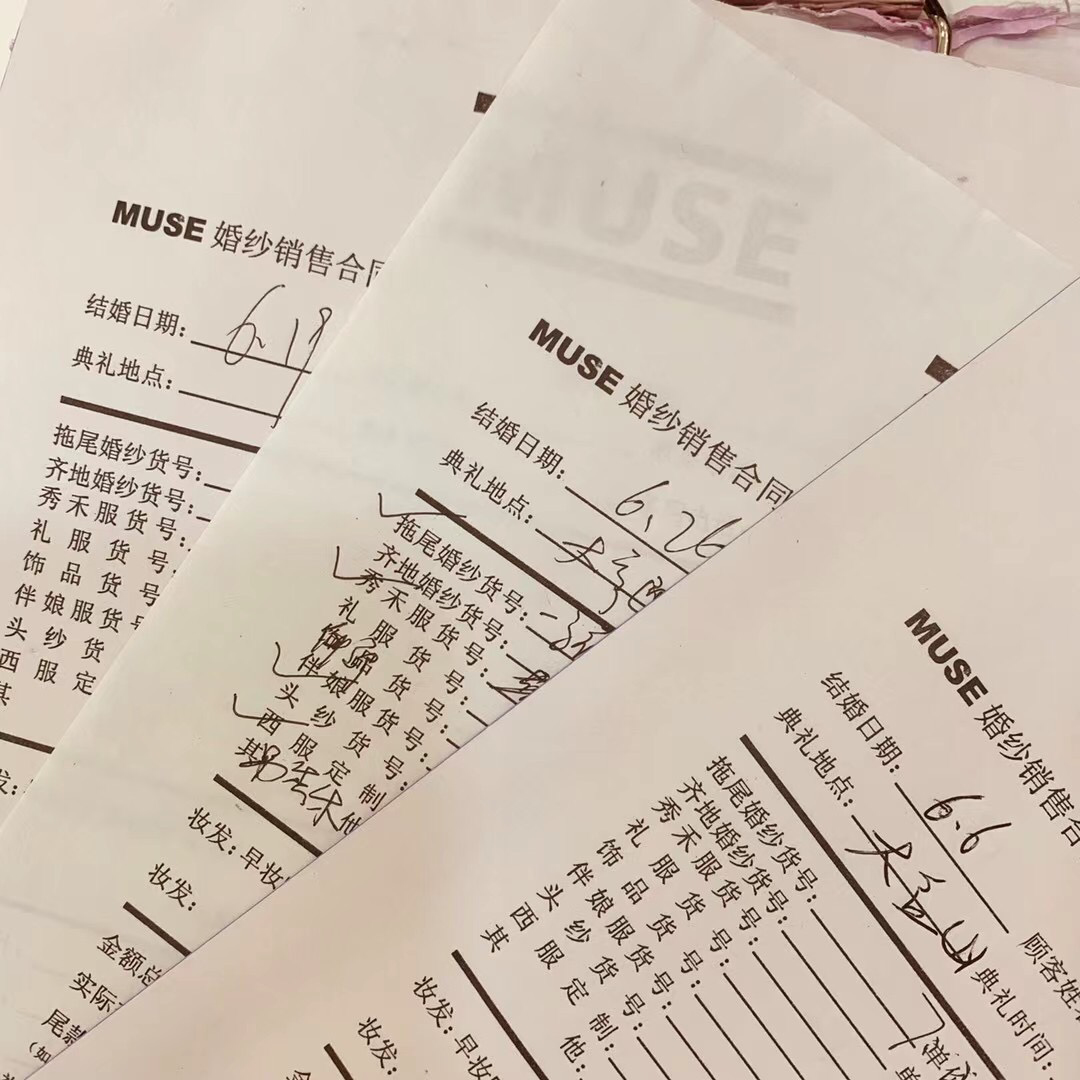 MUSE 婚纱销售合同
结婚日期: 6.19
典礼地点:
拖尾婚纱货号:
齐地婚纱货号:
秀禾服货号:
礼服货号:
饰品货号
伴娘服货号
头纱货
西服定
其
发:
MUSE
MUSE 婚纱销售合同
结婚日期: 6.26
典礼地点:
拖尾婚纱货号:
齐地婚纱货号:
秀禾服货号:
礼服货号:
饰品货号:
伴娘服货号:
头纱货号:
西服定制
其他
妆发: 早妆
妆发:
金额总
实际
尾款
(如
MUSE 婚纱销售合
结婚日期: 6.6
顾客姓
典礼地点:
典礼时间:
拖尾婚纱货号:
齐地婚纱货号:
秀禾服货号:
礼服货号:
饰品货号:
伴娘服货号:
头纱货号:
西服定制:
其他:
妆发: 早妆
妆发: